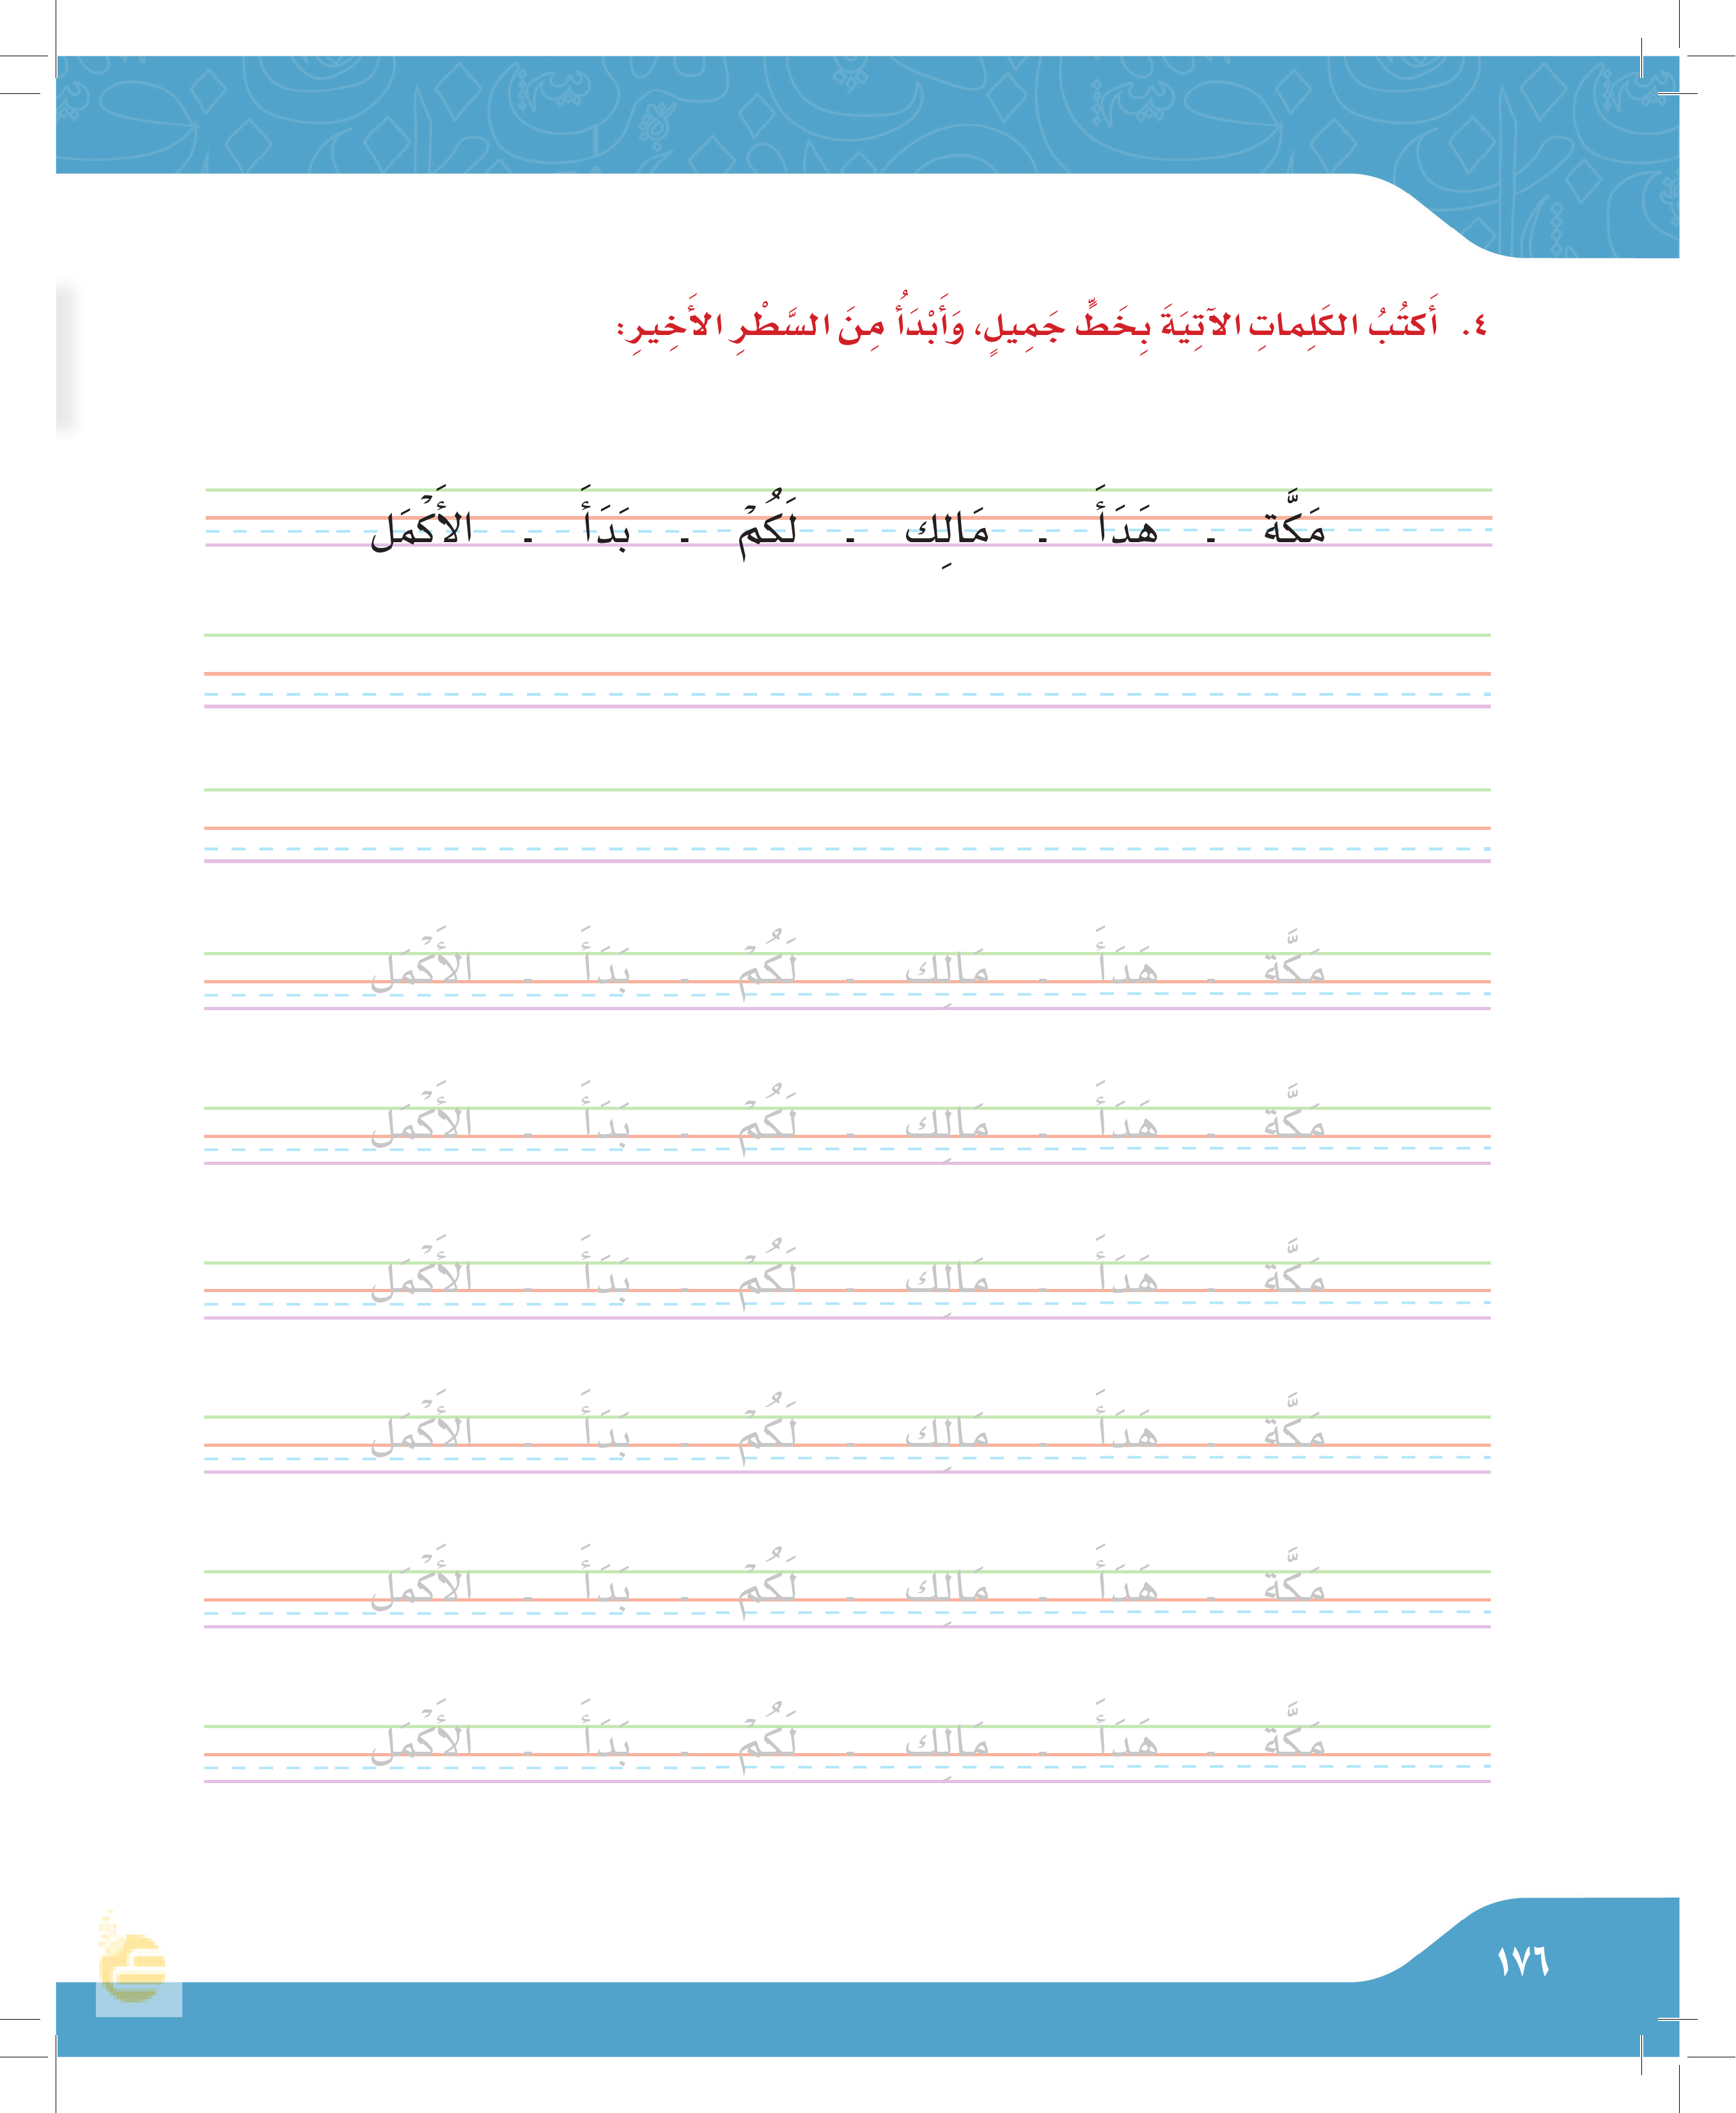 ٤. أَكتُبُ الكَلِماتِ الآتِيَةَ بِخَطٍّ جَمِيلٍ، وَأَبْدَأُ مِنَ السَّطْرِ الأَخِيرِ:
مَكَّة - هَدَأَ - مَالِك - لَكُمْ - بَدَأَ - الأَكْمَل
مَكَّة - هَدَأَ - مَالِك - لَكُمْ - بَدَأَ - الأَكْمَل
مَكَّة - هَدَأَ - مَالِك - لَكُمْ - بَدَأَ - الأَكْمَل
مَكَّة - هَدَأَ - مَالِك - لَكُمْ - بَدَأَ - الأَكْمَل
مَكَّة - هَدَأَ - مَالِك - لَكُمْ - بَدَأَ - الأَكْمَل
مَكَّة - هَدَأَ - مَالِك - لَكُمْ - بَدَأَ - الأَكْمَل
مَكَّة - هَدَأَ - مَالِك - لَكُمْ - بَدَأَ - الأَكْمَل
١٧٦